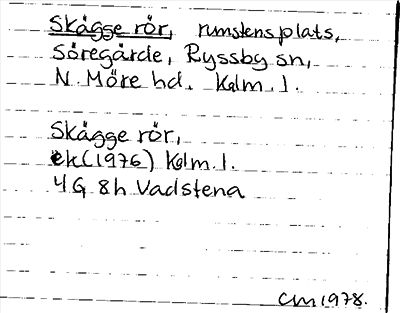 Skågge rör, runstensplats,
Söregärde, Ryssby sn,
N. Möre hd. Kalm. l.
Skågge rör,
ek (1976) Kalm. l.
4G 8h Vadstena
CM 1978.